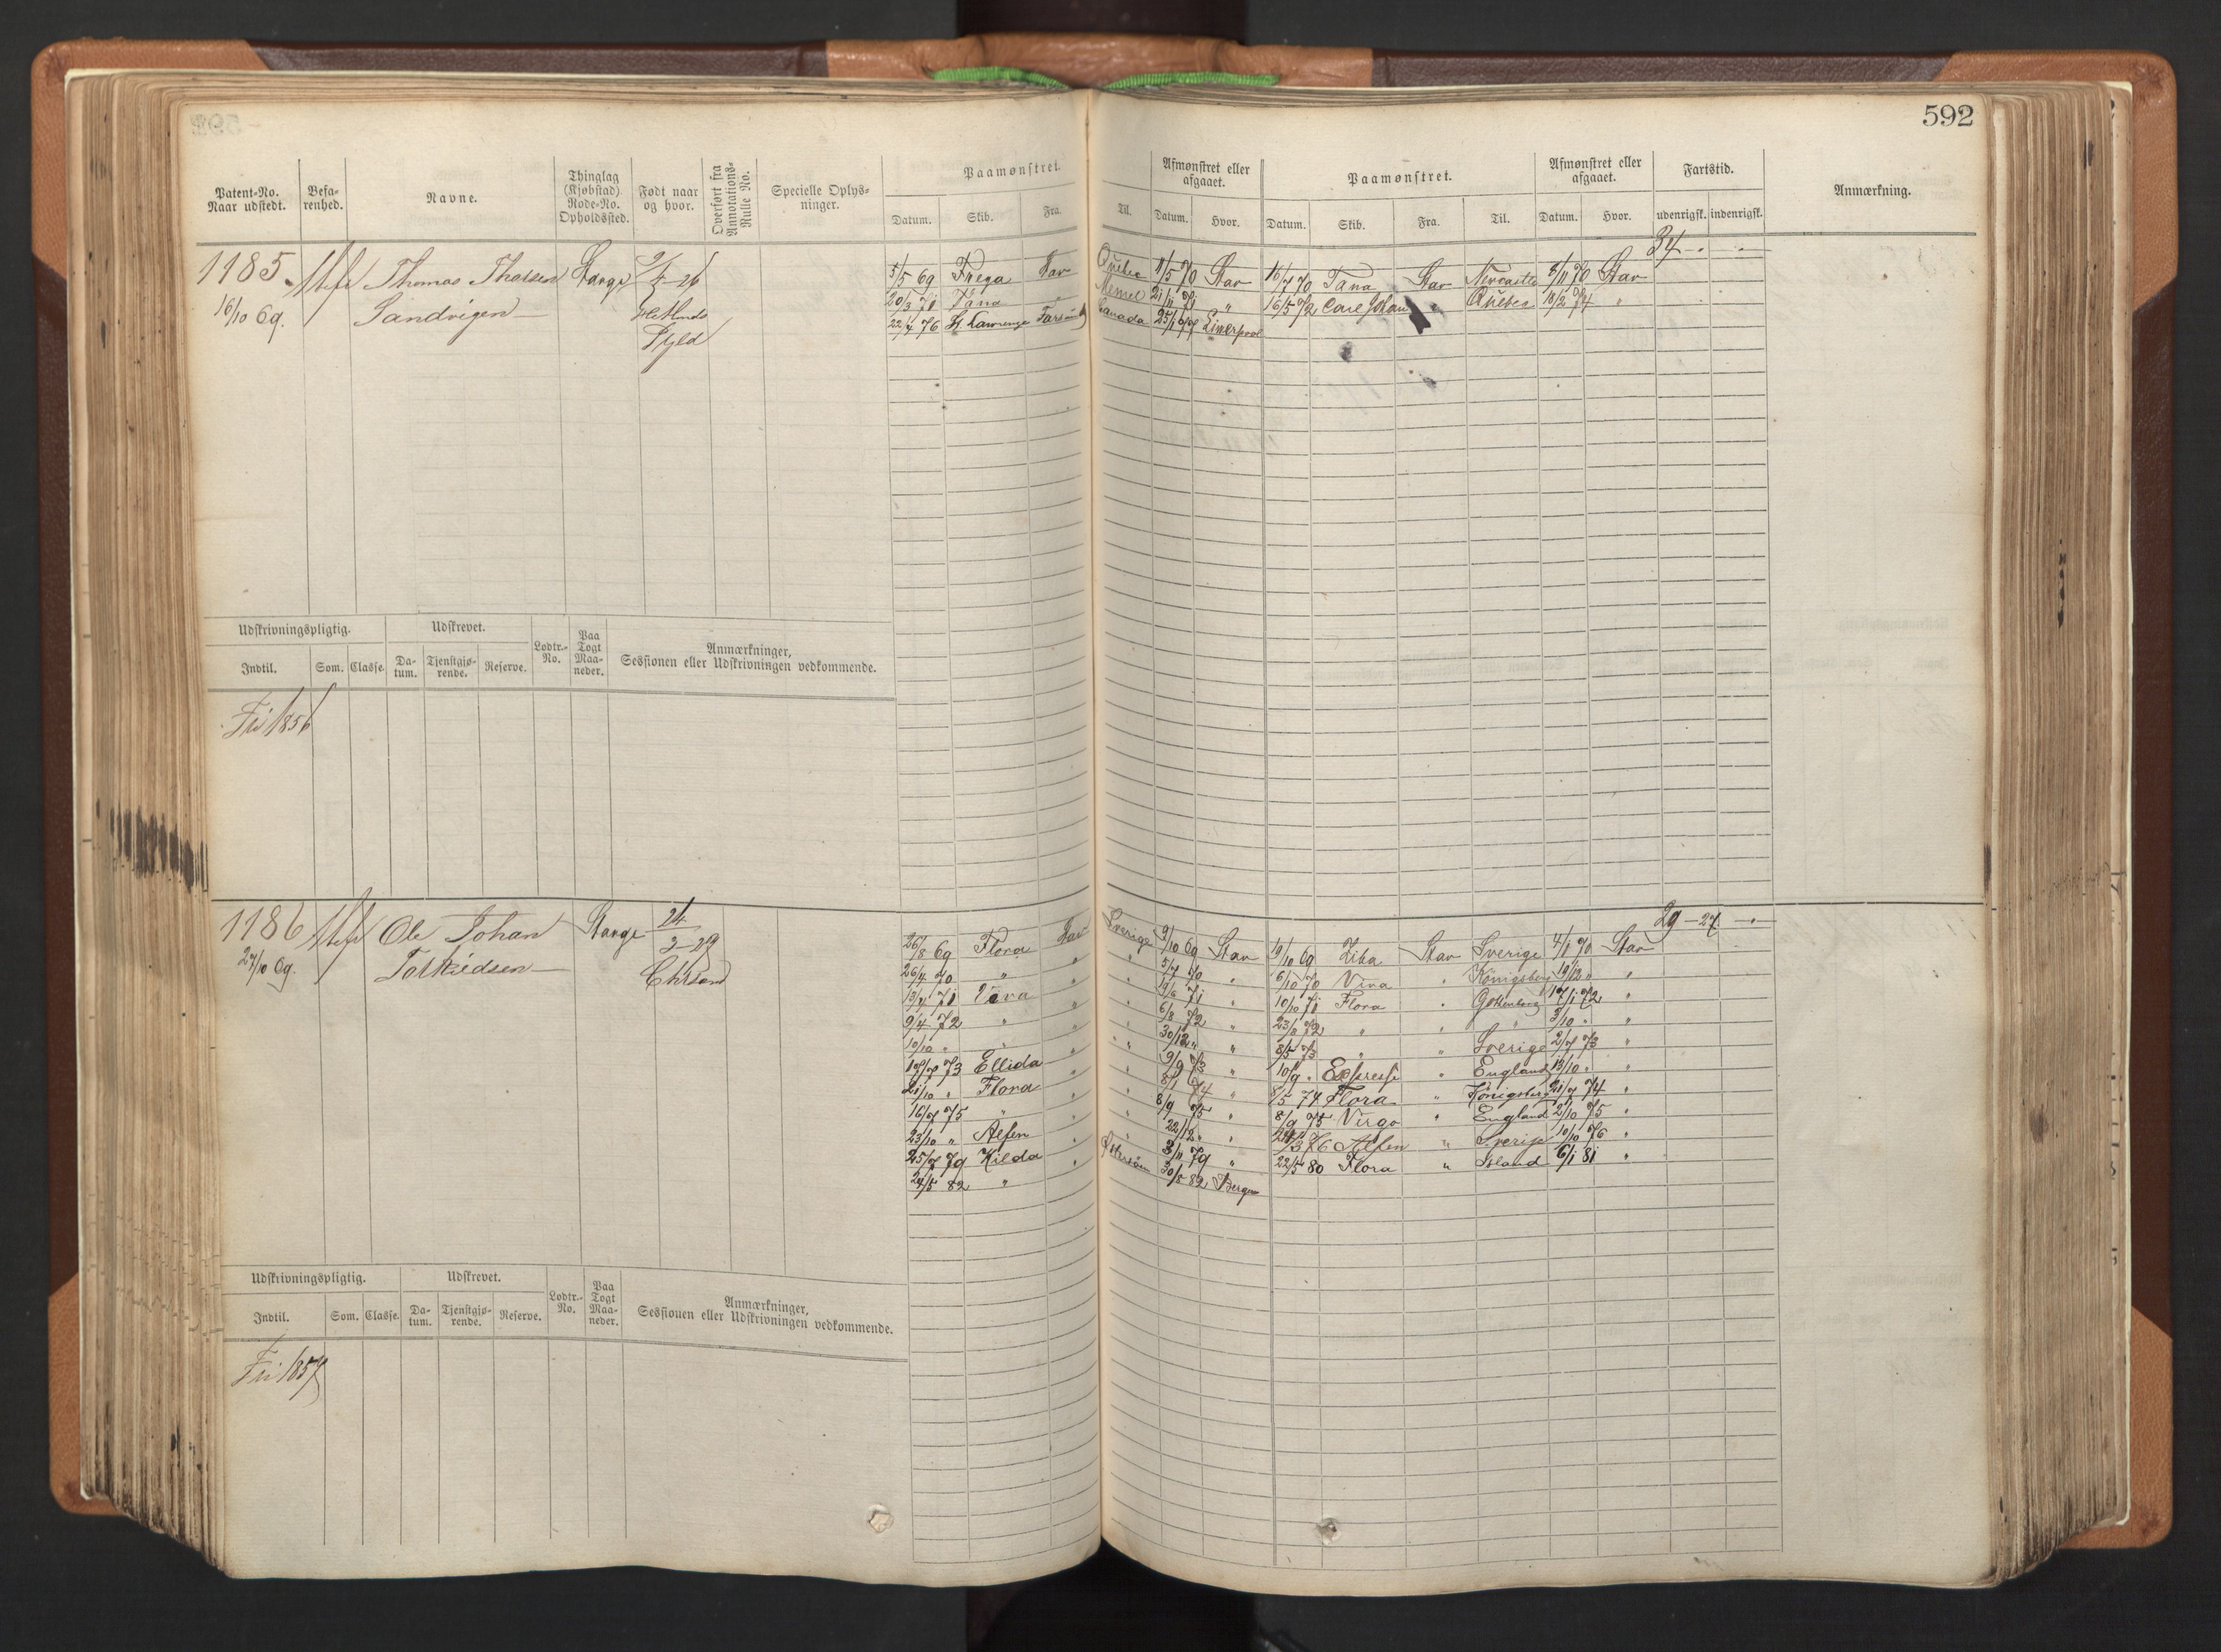 592
Patent-No. Naar udstedt. Befarenhed. Navne. Thinglag (Kjøbstad) Rode-No. Opholdssted. Født naar og hvor. Overført fra Annotations-Rulle No. Specielle Oplysninger. Paamønstret. Afmønstret eller afgaaet. Paamønstret. Afmønstret eller afgaaet. Fartstid. Anmærkning.
Datum. Skib. Fra. Til. Datum. Hvor. Datum. Skib. Fra. Til. Datum. Hvor. udenrigsk. indenrigsk.
34 - "
1185. Thomas Thorsen
16/10 69. Sandvigen
Fyld
5/5 69 Freya Stav Quebec 11/5 70 Stav 16/7 70 Tana Stav Newcastle 5/11 70 Stav
20/3 71 Tana Memel 21/11 71 " 16/5 72 Carl Johan " Quebec 18/2 74 "
22/4 76 St. Lawrence Farsund Canada 25/1 77 Liverpool
Udskrivningspligtig. Udskrevet. Lodtr.-No. Paa Togt Maaneder. Anmærkninger, Sessionen eller Udskrivningen vedkommende.
Indtil. Som. Classe. Datum. Tjenstgjørende. Reserve.
Fri 1856
1186 Ole Johan
27/10 69. Torkildsen
24/2 29
Chrsand
29 - 27 - "
26/8 69 Flora Stav Sverige 9/10 69 Stav 19/10 69 Ziba Stav Sverige 4/1 70 Stav
26/4 70 " " " 5/7 70 " 6/10 70 Vira " Königsberg 19/12 " "
13/4 71 Vira " " 14/6 71 " 10/10 71 Flora " Gottenborg 17/1 72 "
9/4 72 " " " 6/8 72 " 23/8 72 " " " 3/10 " "
10/10 " " " " 30/12 " " 8/5 73 " " Sverige 2/7 73 "
17/7 73 Ellida " " 9/9 73 " 10/9 " Express " England 13/10 " "
21/10 " Flora " " 8/1 74 " 8/5 74 Flora " Königsberg 21/7 74 "
16/7 75 " " " 8/9 75 " 8/9 75 Virgo " England 2/10 75 "
23/10 " Alfen " " 22/12 " " 24/3 76 Alfen " Sverige 10/10 76 "
25/7 79 Kilda " 3/11 79 " 22/5 80 Flora " Island 6/1 81 "
24/5 82 " 30/8 82 Bergen
Udskrivningspligtig. Udskrevet. Lodtr.-No. Paa Togt Maaneder. Anmærkninger, Sessionen eller Udskrivningen vedkommende.
Indtil. Som. Classe. Datum. Tjenstgjørende. Reserve.
Fri 1857